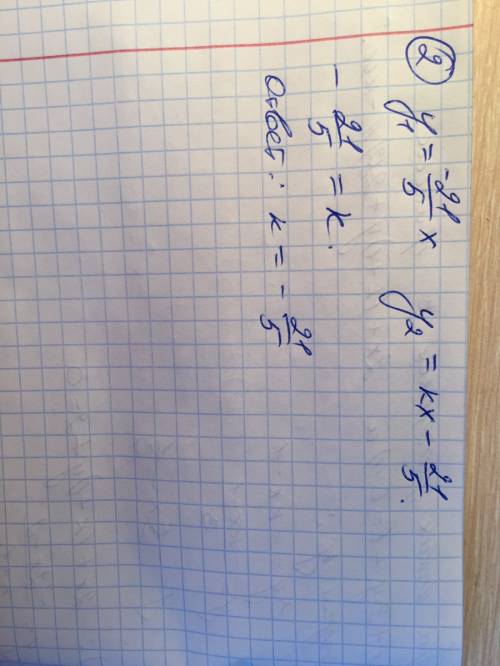 ② y₁ = -21/5 x y₂ = kx - 21/5.
- 21/5 = k.
Ответ: k = - 21/5